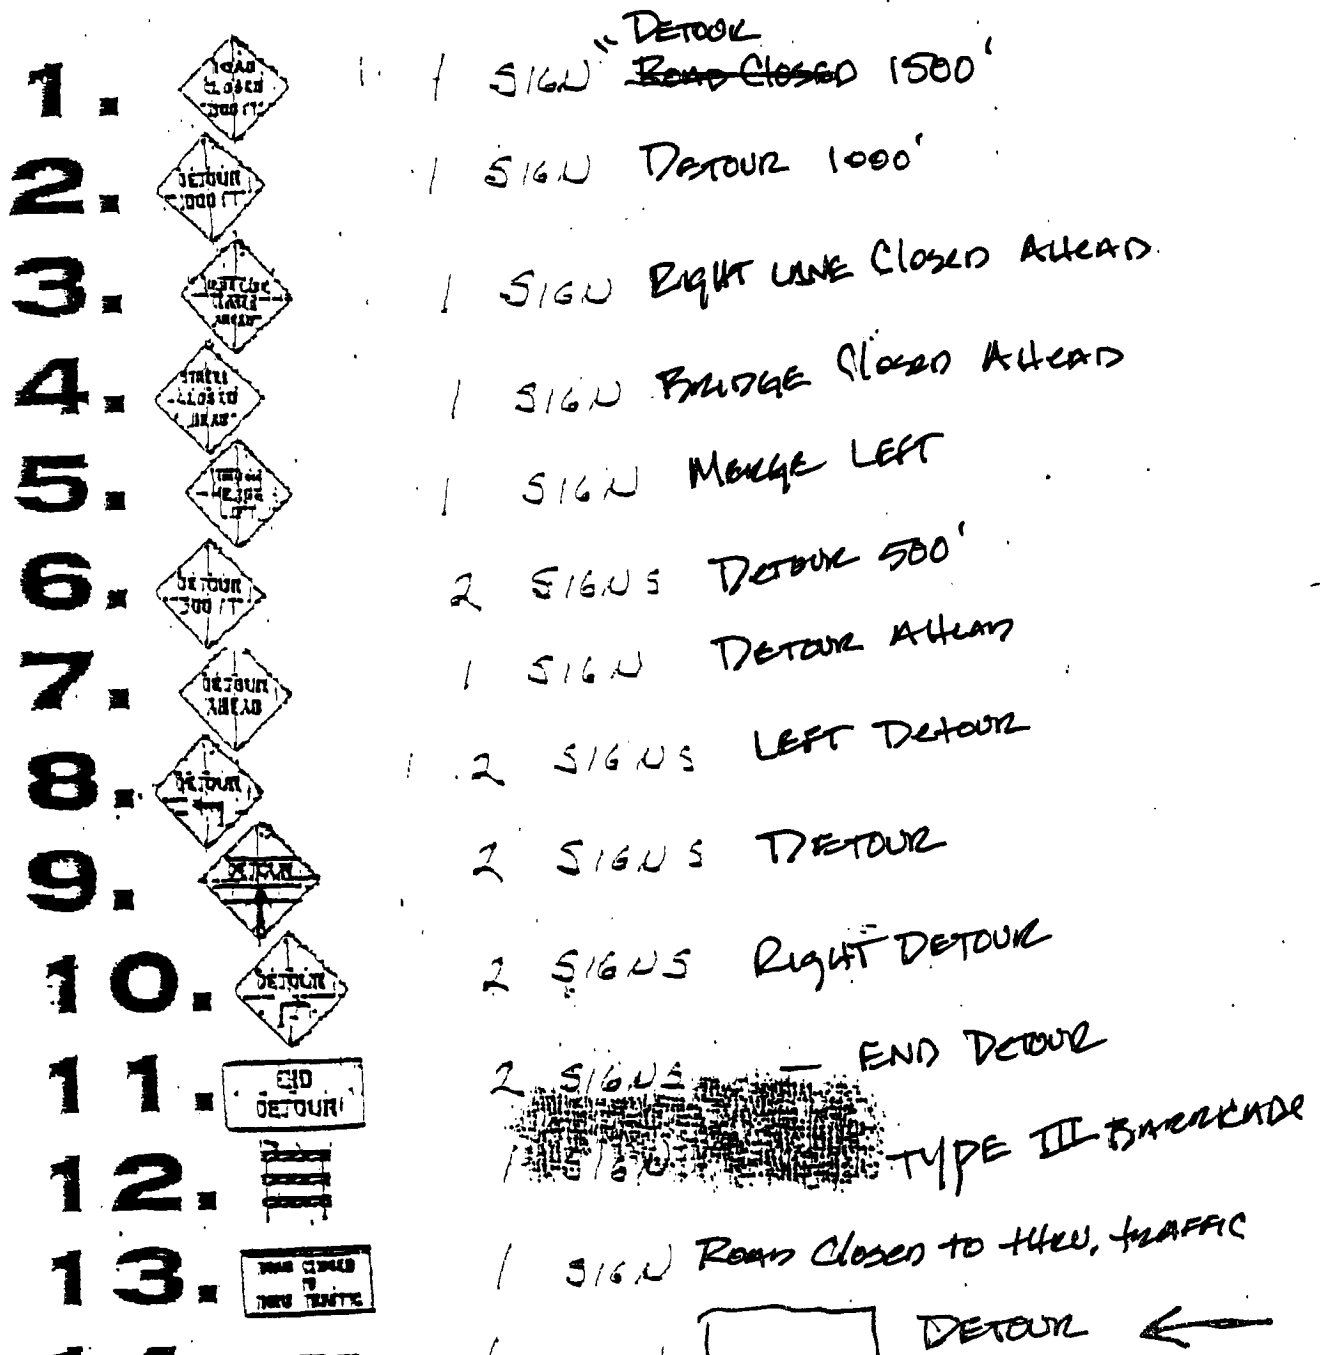 " DETOUR
1. ROAD CLOSED 1 SIGN ROAD CLOSED 1500'
2. DETOUR 1000 FT 1 SIGN DETOUR 1000'
3. AHEAD 1 SIGN RIGHT LANE CLOSED AHEAD
4. STREET CLOSED AHEAD 1 SIGN BRIDGE CLOSED AHEAD
5. MERGE LEFT 1 SIGN MERGE LEFT
6. DETOUR 500 FT 2 SIGNS DETOUR 500'
7. DETOUR AHEAD 1 SIGN DETOUR AHEAD
8. DETOUR 2 SIGNS LEFT DETOUR
9. DETOUR 2 SIGNS DETOUR
10. DETOUR 2 SIGNS RIGHT DETOUR
11. END DETOUR 2 SIGNS — END DETOUR
12. 1 SIGN TYPE III BARRICADE
13. ROAD CLOSED TO THRU TRAFFIC 1 SIGN ROAD CLOSED to thru. traffic
DETOUR ←